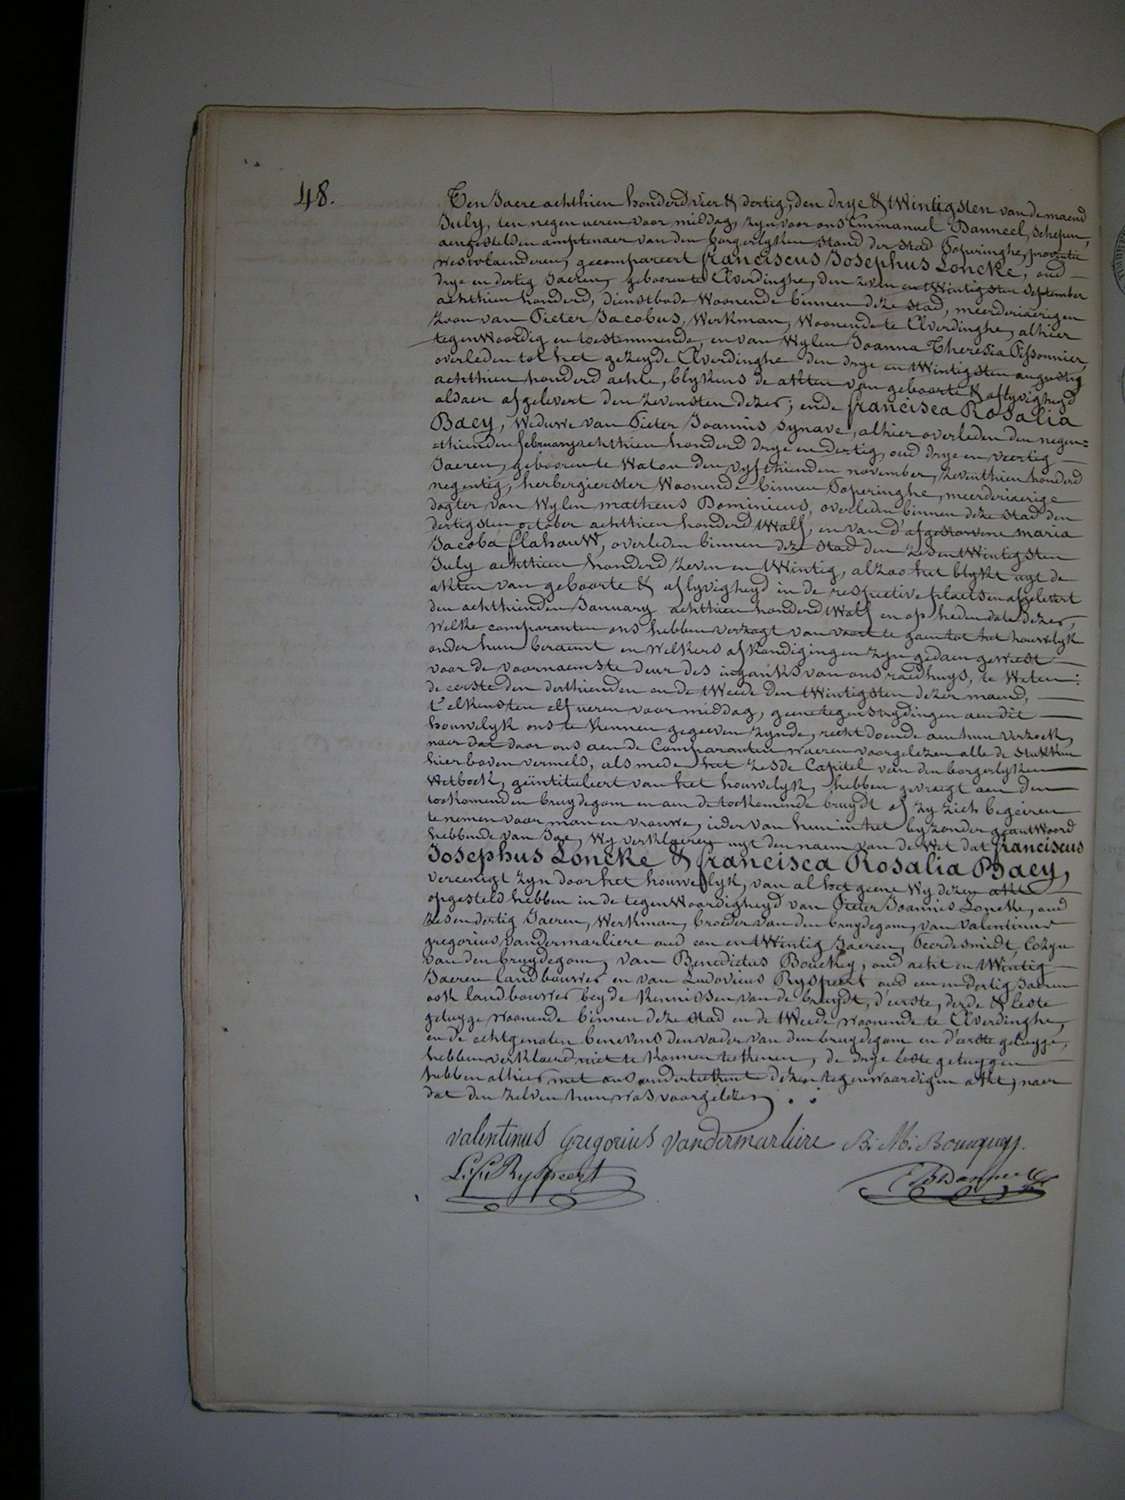 48.
Ten Jaere achthien honderd vier & dertig, den drye & Wintigsten van de maend
July, ten negen ueren voor middag, zyn voor ons Emmanuel Banneel, schepen,
aengestelden amptenaer van den borgerlyken stand der stad Poperinghe, provintie
westvlaenderen, gecompareert franciscus Josephus Loncke, oud
drye en dertig Jaeren, gebooren te Elverdinghe, den zeven en Wintigsten september
achthien honderd, dienstbode Woonende binnen deze stad, meerderjaerigen
zoon van Pieter Jacobus, Werkman, Woonende te Elverdinghe, alhier
tegenWoordig en toestemmende, en van Wylen Joanna Theresia Pissonnier,
overleden tot het gezeyde Elverdinghe den drye en Wintigsten augusty
achthien honderd achte, blykens de akten van geboorte & aflyvigheyd
aldaer afgelevert den zevensten dezer; ende francisca Rosalia
Baey, Weduwe van Pieter Joannis Synave, alhier overleden den negen=
thienden february achthien honderd drye en dertig, oud drye en veertig
Jaeren, gebooren te Watou den vyfthienden november, zeventhien honderd
negentig, herbergierster Woonende binnen Poperinghe, meerderjaerige
dogter van Wylen matheus Dominicus, overleden binnen deze stad den
dertigsten october achthien honderd Walf, en van d'afgestorvene maria
Jacoba Clahouw, overleden binnen deze stad den zes en Wintigsten
July achthien honderd zeven en tWintig, alzoo het blykt uyt de
akten van geboorte & aflyvigheyd in de respective plaetsen afgelevert
den achthienden January achthien honderd Walf en op heden date dezer,
Welke comparanten ons hebben verzogt van voort te gaen tot het houwelyk
onder hun beraemt en Welkers afkondigingen zyn gedaen geweest
voor de voornaemste deur des ingangs van ons raedhuys, te Weten:
de eerste den derthienden en de tWeede den tWintigsten dezer maend,
t'elkensten elf ueren voor middag, geene tegenstrydingen aen dit
houwelyk ons te kennen gegeeven zynde, recht doende aen hun verzoek,
naer dat door ons aen de Comparanten waeren voorgelezen alle de stukken
hier boven vermeld, als mede het zesde Capitel van den borgerlyken
Wetboek, geïntituleert van het houwelyk, hebben gevraegt aen den
toekomenden bruydegom en aen de toekomende bruydt of zy zich begeiren
te nemen voor man en vrouwe, ieder van hun in het byzonder geantWoord
hebbende van Jae, Wy verklaeren uyt den naem van de Wet dat franciscus
Josephus Loncke & francisca Rosalia Baey,
vereenigt zyn door het houwelyk, van al het geene Wy dezen akte
opgesteld hebben in de tegenWoordigheyd van Pieter Joannes Loncke, oud
zes en dertig Jaeren, Werkman, broeder van den bruydegom, van valentinus
gregorius vandermarliere oud een en tWintig Jaeren, peerdesmidt, cozyn
van den bruydegom, van Benedictus Bouckey, oud acht en tWintig
Jaeren landbouwer en van Ludovicus Ryspeert oud een en dertig Jaeren
ook landbouwer beyde kennissen van de bruydt, d'eerste, derde & leste
getuyge woonende binnen deze stad en de tWeede woonende te Elverdinghe,
en de echtgenoten benevens den vader van den bruydegom en d'eerste getuyge,
hebben verklaerd niet te konnen teekenen, de drye leste getuygen
hebben alhier met ons onderteekent dezen tegenwoordigen akte, naer
dat den zelven hun was voorgelezen
valentinus Gregorius Vandermarliere
L: Ryspeert